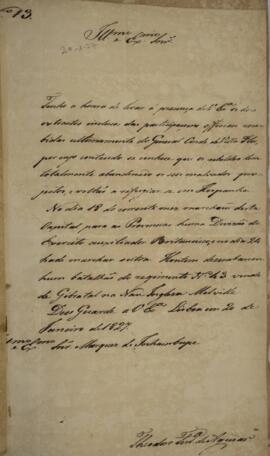 N. 13.
Illmo
e Exmo Snr.
Tenho a honra de levar á presença de V. Exa. os dous
extractos inclusos das participaçoens officiaes rece-
bidas ultimamente do General Conde de Villa Flor,
por cujo contendo se conhece que os rebeldes tem
totalmente abandonado os seus
e voltão a refugiar-se em Hespanha.
No dia 18 do corrente mez marchou desta
Capital para as Provincias huma Divizão do
Exercito auxiliador Britannico, e no dia 24
hade marchar outra. Hontem desembarcou
hum batalhão do regimento No. 43 vindo
de Gibraltar na Nau Ingleza Melville
Deos Guarde a V. Exa. Lisboa em 20 de
Janeiro de 1827
Illmo e Exmo Snr. Marquez de Inhambupe